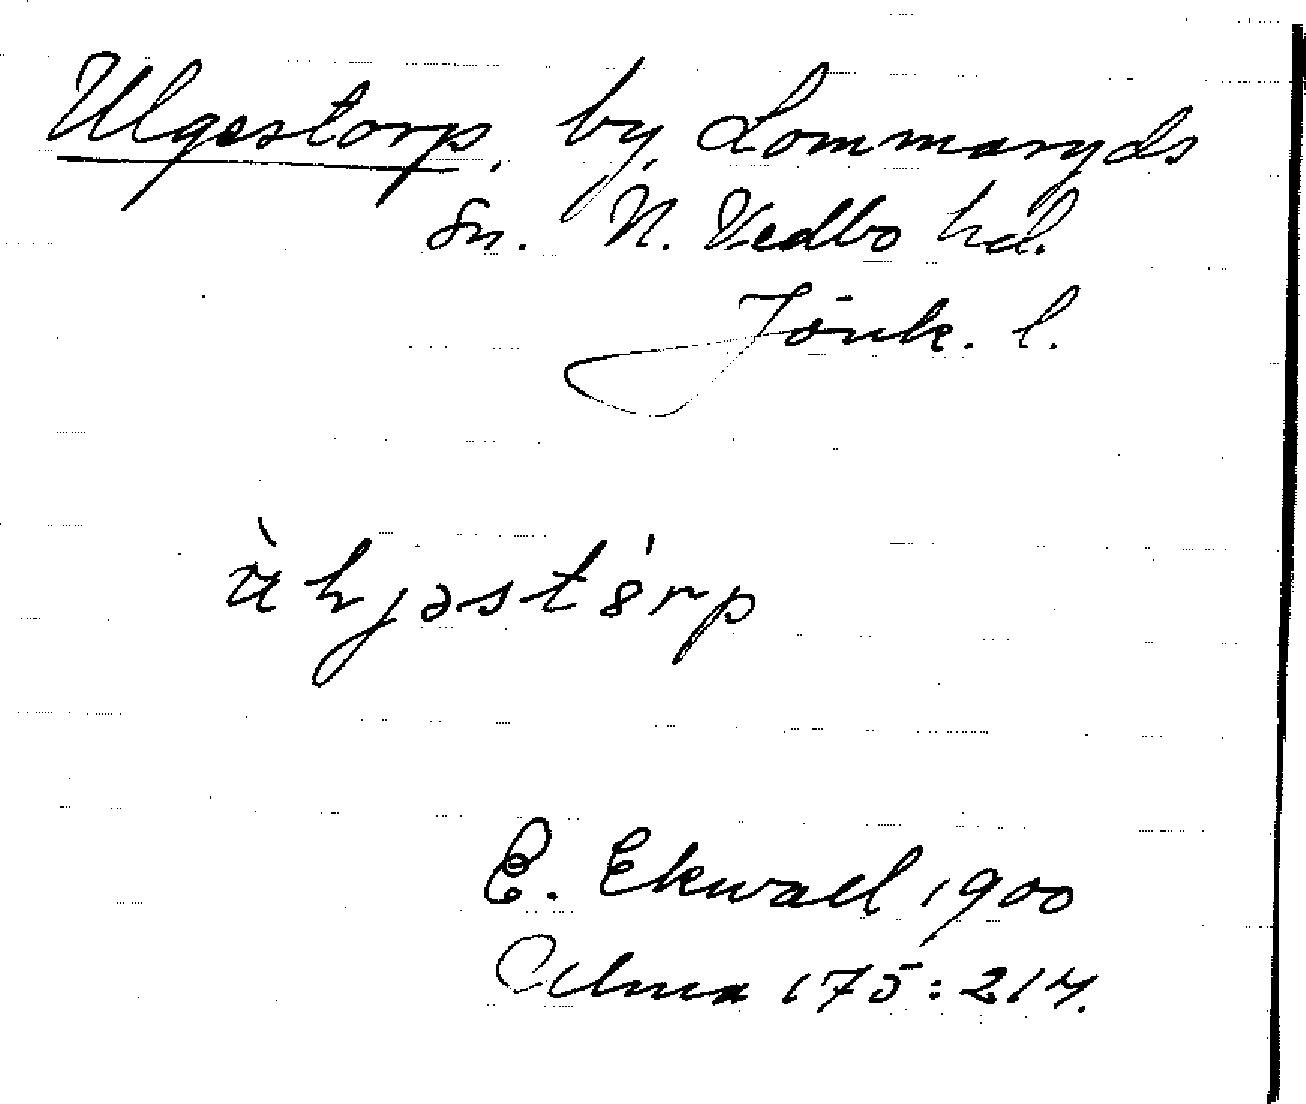 Ulgestorp, by, Lommaryds
sn. N. Vedbo hd.
Jönk. l.
E. Ekwall 1900
Alma 175:217.